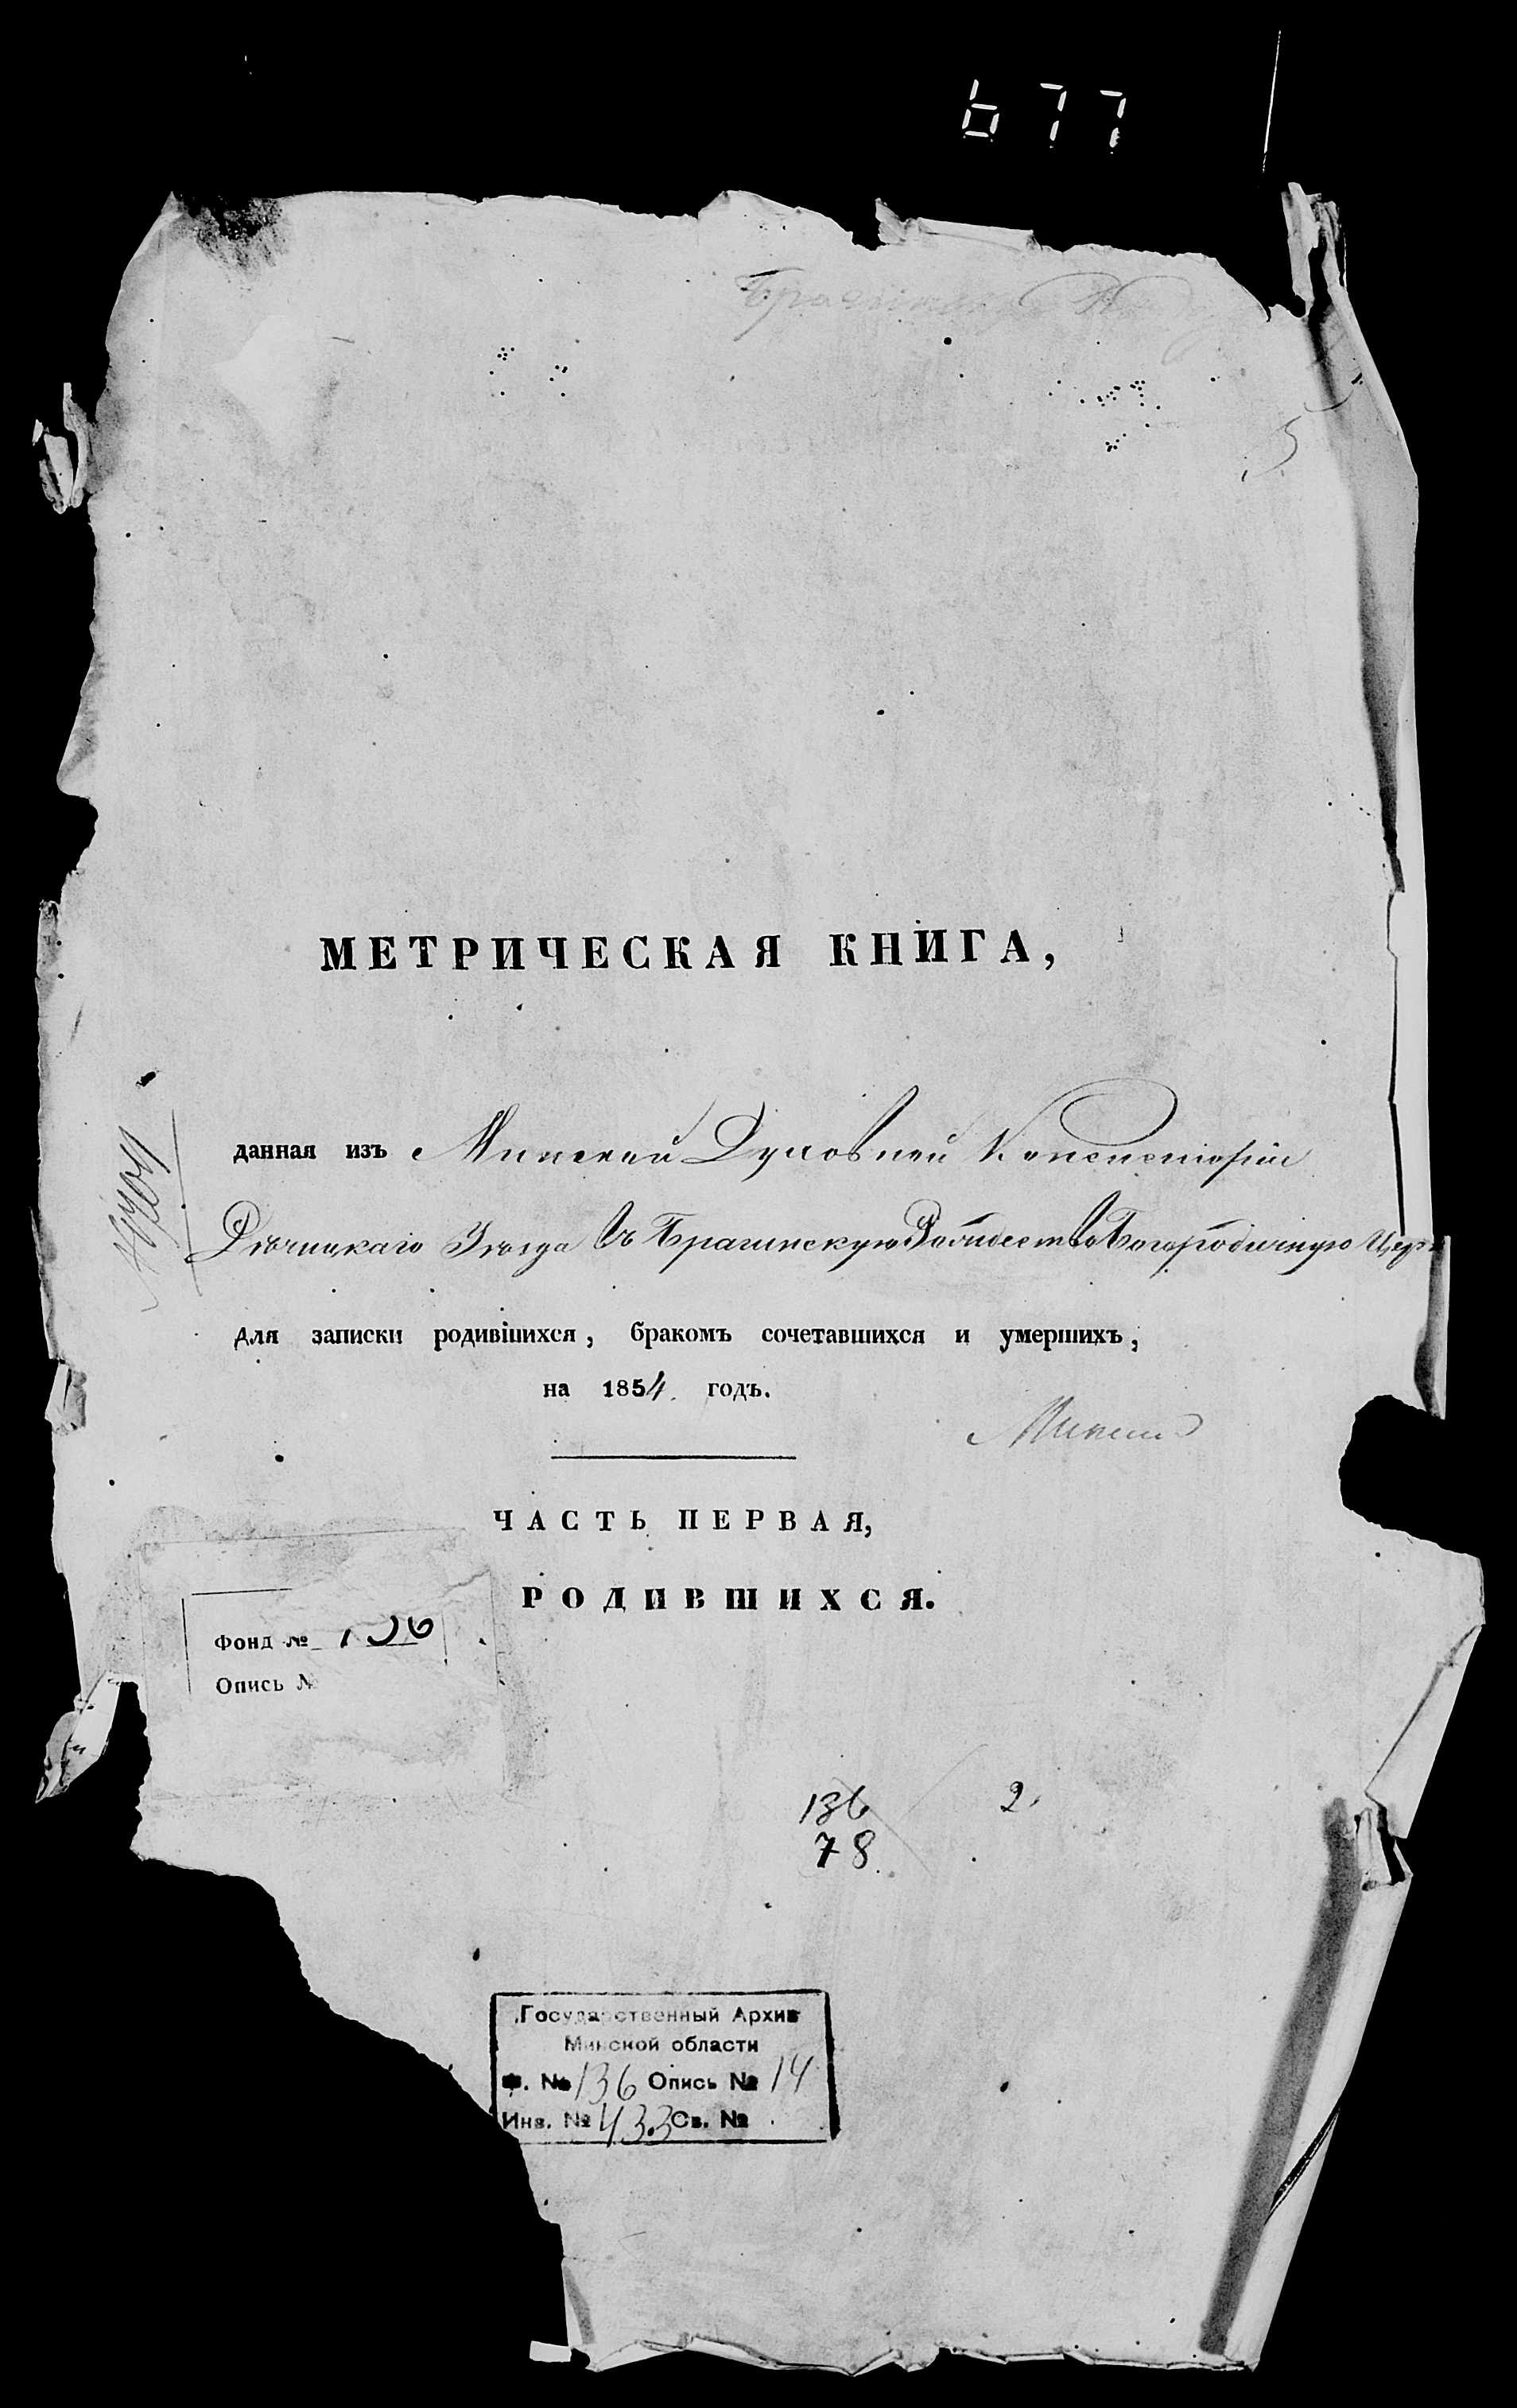 677
5
МЕТРИЧЕСКАЯ КНИГА,
данная изъ Минской Духовной Консисторіи
Рѣчицкаго Уѣзда въ Брагинскую Рождество Богородичную Церк
для записки родившихся, бракомъ сочетавшихся и умершихъ,
на 1854 годъ.
ЧАСТЬ ПЕРВАЯ,
РОДИВШИХСЯ.
Фонд № 136
Опись №
136 2.
78
Государственный Архив
Минской области
Ф. № 136 Опись № 14
Инв. № 433 Св. №